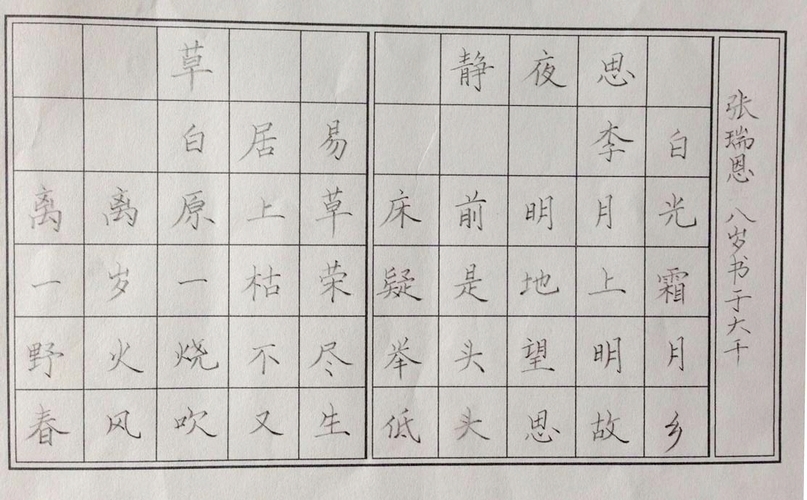 草
白居易
离离原上草
一岁一枯荣
野火烧不尽
春风吹又生
静夜思
李白
床前明月光
疑是地上霜
举头望明月
低头思故乡
张瑞恩 八岁书于大千